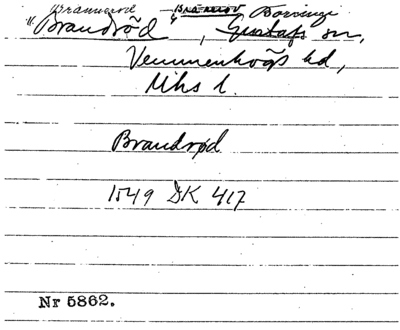 Brännerod Bränneröd Börringe
"Brandröd", Gustafs sn,
Vemmenhögs hd,
Mhs l.
Brandrød
1549 DK 417
Nr 5862.